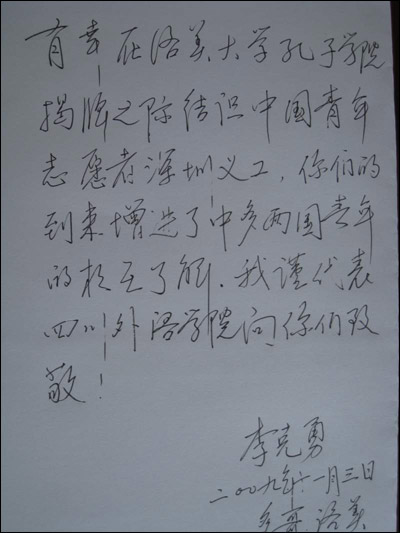 有幸在洛美大学孔子学院
揭牌之际结识中国青年
志愿者深圳义工，你们的
到来增进了中多两国青年
的相互了解．我谨代表
四川外语学院向你们致
敬！
李克勇
二〇〇九年十一月三日
多哥．洛美